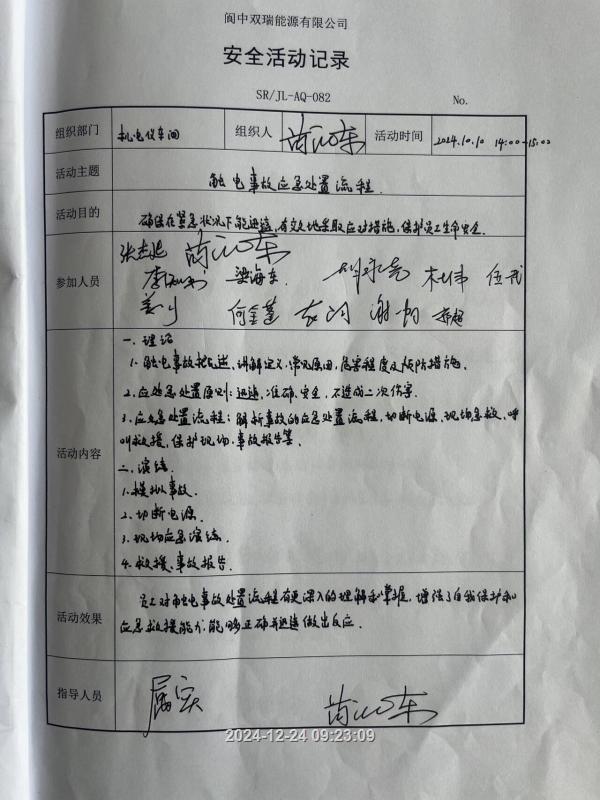 阆中双瑞能源有限公司
安全活动记录
SR/JL-AQ-082 No.
组织部门 机电仪车间 组织人 活动时间 2024.10.10 14:00-15:00
活动主题 触电事故应急处置流程.
活动目的 确保在紧急状况下能迅速,有效地采取应对措施,保护员工生命安全.
梁海东 杜伟 伍武
参加人员
何金莲 谢
活动内容
一.理论
1.触电事故概述,讲解定义,常见原因,危害程度及预防措施.
2.应急处置原则:迅速,准确,安全,不造成二次伤害.
3.应急处置流程:解析事故的应急处置流程,切断电源,现场急救,呼
叫救援,保护现场,事故报告等.
二.演练.
1.模拟事故.
2.切断电源.
3.现场应急演练.
4.救援、事故报告.
活动效果
员工对触电事故处置流程有更深入的理解和掌握,增强了自我保护和
应急救援能力,能够正确并迅速做出反应.
指导人员 属实
2024-12-24 09:23:09